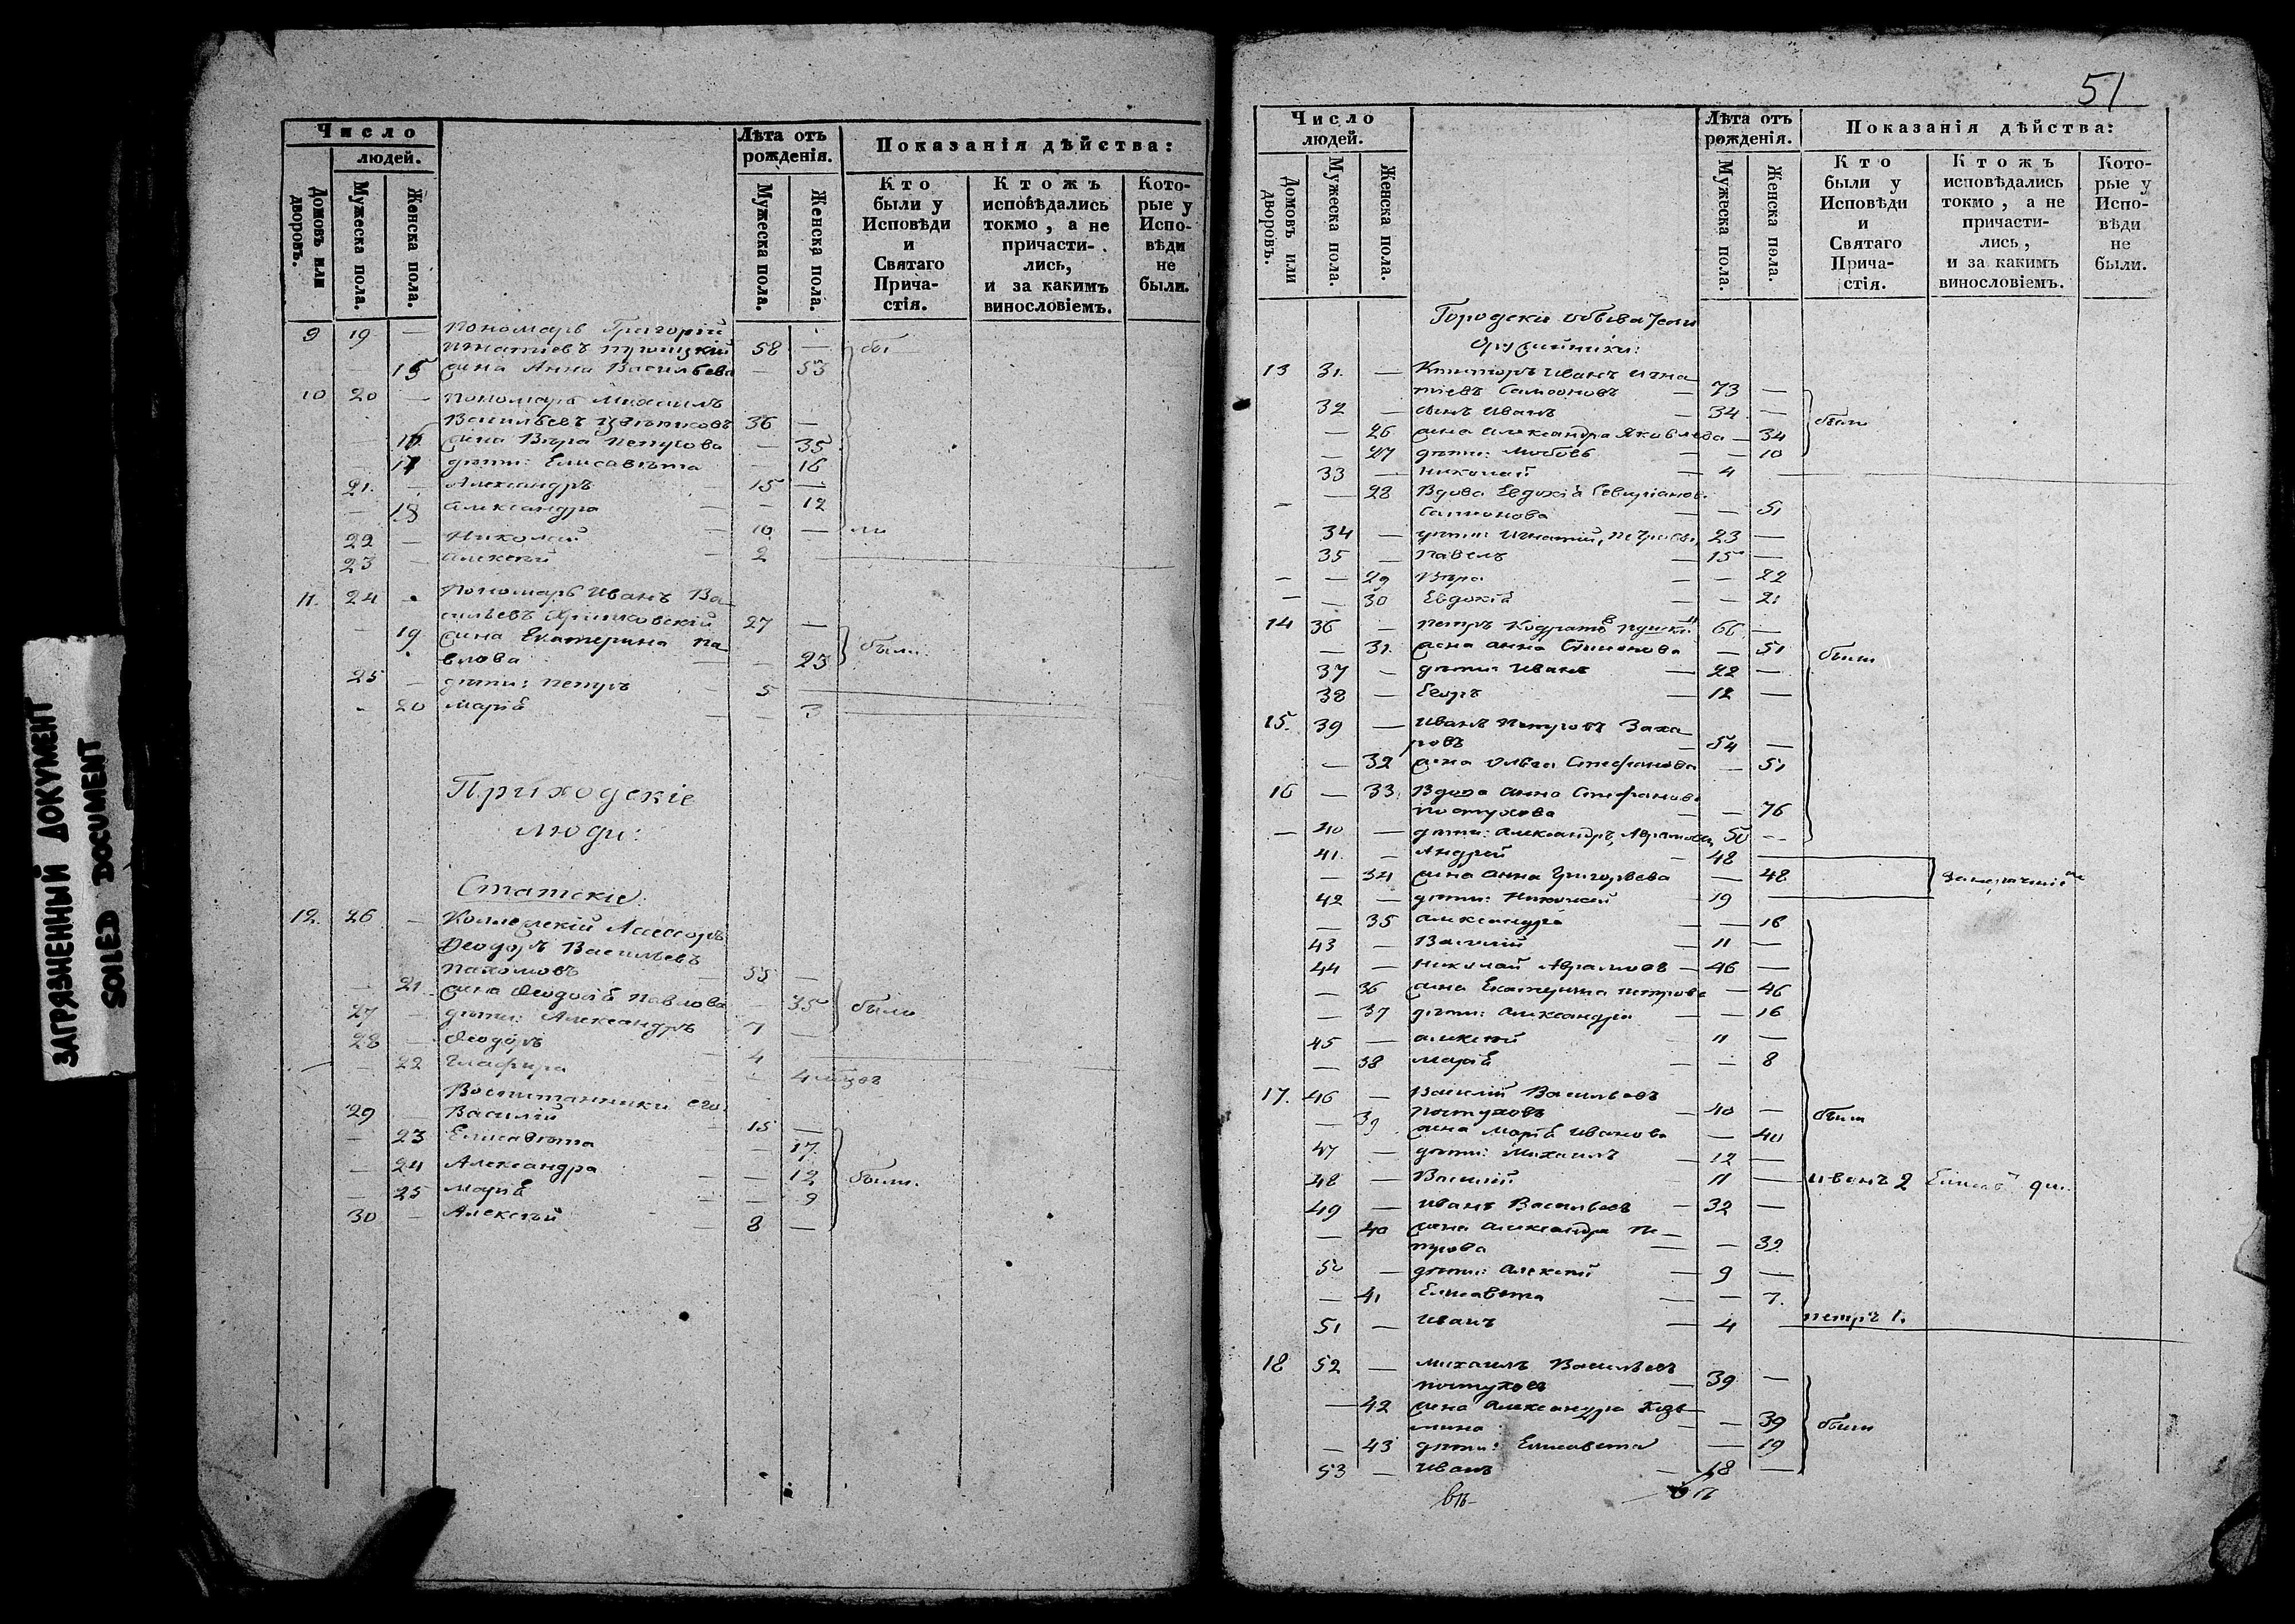 ЗАГРЯЗНЕННЫЙ ДОКУМЕНТ
SOILED DOCUMENT
Число
людей.
Домовъ или дворовъ.
Мужеска пола.
Женска пола.
Лѣта отъ рожденія.
Мужеска пола.
Женска пола.
Показанія дѣйства:
Кто были у Исповѣди и Святаго Прича-стія.
Ктожъ исповѣдались токмо, а не причасти-лись, и за какимъ винословіемъ.
Кото-рые у Испо-вѣди не были.
9 19 — Пономарь Григорій
Игнатіевъ 58 —
— 15 жена Анна Васильева — 53
бы
10 20 — Пономарь Михаилъ
Васильевъ 36 —
— 16 жена Вѣра Петрова — 35
— 17 дѣти: Елисавѣта — 16
21. — Александръ 15 —
— 18 Александра — 12
22 — Николай 10 — ли
23 — Алексѣй 2
11. 24 Пономарь Иванъ Ва-
сильевъ 27 —
— 19 жена Екатерина Па-
влова — 23 были
25 — дѣти: Петръ 5
— 20 Марія — 3
Приходскіе
люди:
Статскіе:
12. 26 — Коллежскій Ассесоръ
Ѳеодоръ Васильевъ
Пахомовъ 55 —
— 21. жена Ѳеодосія Павлова — 35 были
27 — дѣти: Александръ 7 —
28 — Ѳеодоръ 4
— 22 Глафира — 4
Воспитанники его:
29 — Василій 15 —
— 23 Елисавѣта — 17
— 24 Александра — 12 были.
— 25 Марія — 9
30 — Алексѣй 8 —
51
Число людей.
Домовъ или дворовъ.
Мужеска пола.
Женска пола.
Лѣта отъ рожденія.
Мужеска пола.
Женска пола.
Показанія дѣйства:
Кто были у Исповѣди и Святаго Прича-стія.
Ктожъ исповѣдались токмо, а не причасти-лись, и за какимъ винословіемъ.
Кото-рые у Испо-вѣди не были.
Городскіе обыватели
Оружейники:
13 31. — Иванъ Игна-
тіевъ 73 —
32 — сынъ Иванъ — 34 —
— 26 жена Александра Яковлева — 34 были
— 27 дѣти: Любовь — 10
33 — Николай — 4
— 28 Вдова Евдокія
— 51
34 — дѣти: Игнатій, 23 —
35 — Павелъ — 15 —
— 29 Вѣра — 22
— 30 Евдокія — 21
14 36 — Петръ 66 —
— 31. жена Анна — 51 были
37 — дѣти: Иванъ — 22 —
38 — Егоръ — 12 —
15. 39 — Иванъ Петровъ Заха-
ровъ — 54 —
— 32 жена Ольга Стефанова — 51
16 — 33. Вдова Анна Стефанова
Пастухова — 76
— 40 — дѣти: Александръ, 50 —
41. — Андрей — 48
— 34 жена Анна Григорьева — 48
42 — дѣти: Николай — 19
— 35 Александра — 16
43 — Василій — 11 —
44 — Николай — 46 —
— 36 жена Екатерина Петрова — 46
— 37 дѣти: Александра — 16
45 — Алексѣй 11 —
— 38 Марія — 8
17. 46 — Василій Васильевъ
Пастуховъ — 40 — были
— 39 жена Марія Иванова — 40
47 — дѣти: Михаилъ — 12 —
48 — Василій — 11 — Иванъ 2
49 — Иванъ Васильевъ — 32 —
— 40 жена Александра Пе-
трова — 32
50 — дѣти: Алексѣй — 9 —
— 41 Елисавѣта — 7.
51 — Иванъ — 4 Петръ 1.
18 52 — Михаилъ Васильевъ
Пастуховъ — 39 —
— 42 жена Александра Козь-
мина — 39 были
— 43 дѣти: Елисавета — 19
53 — Иванъ — 18 —